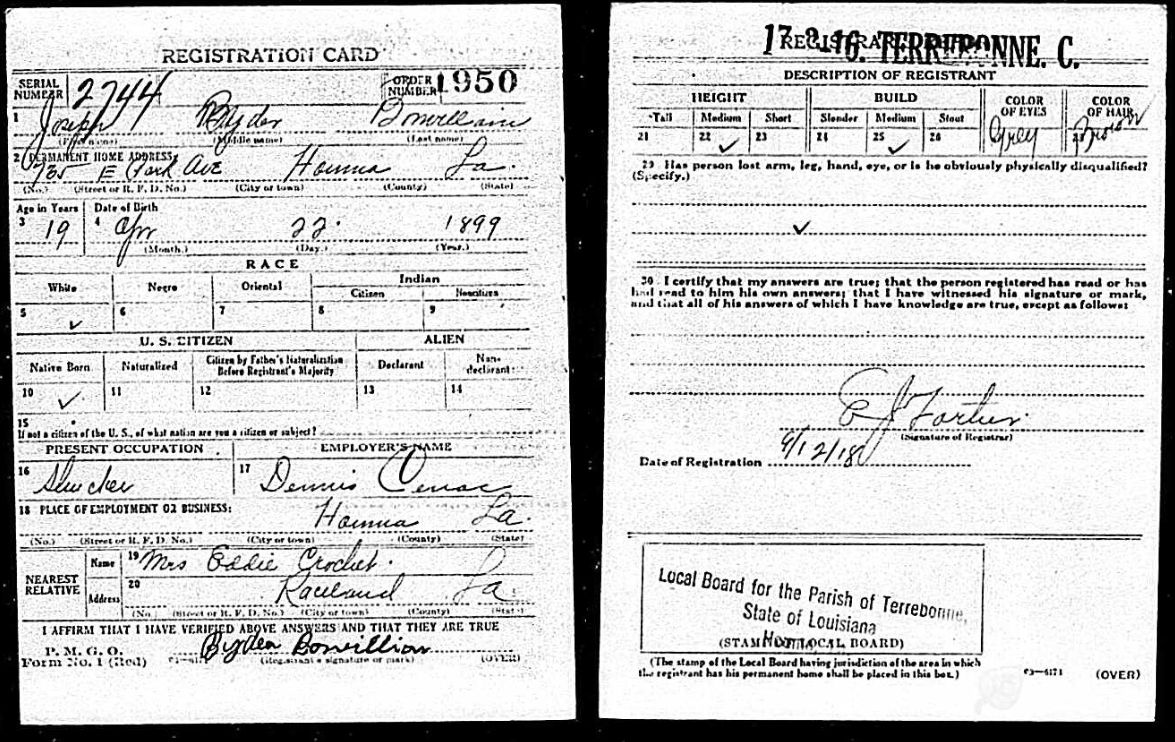 REGISTRATION CARD
SERIAL NUMBER 2744 ORDER NUMBER 1950
1 Joseph Bonvillain
(First name) (Middle name) (Last name)
2 PERMANENT HOME ADDRESS:
E Park Ave Houma La.
(No.) (Street or R. F. D. No.) (City or town) (County) (State)
Age in Years Date of Birth
3 19 4 Apr 22. 1899
(Month.) (Day.) (Year.)
RACE
White Negro Oriental Indian
Citizen Noncitizen
5 ✓ 6 7 8 9
U. S. CITIZEN ALIEN
Native Born Naturalized Citizen by Father's Naturalization Before Registrant's Majority Declarant Non-declarant
10 ✓ 11 12 13 14
15
If not a citizen of the U. S., of what nation are you a citizen or subject?
PRESENT OCCUPATION EMPLOYER'S NAME
16 Shucker 17 Dennis Cenac
18 PLACE OF EMPLOYMENT OR BUSINESS:
Houma La.
(No.) (Street or R. F. D. No.) (City or town) (County) (State)
NEAREST RELATIVE
Name 19 Mrs Eddie Crochet.
Address 20 Raceland La
(No.) (Street or R. F. D. No.) (City or town) (County) (State)
I AFFIRM THAT I HAVE VERIFIED ABOVE ANSWERS AND THAT THEY ARE TRUE
P. M. G. O.
Form No. 1 (Red) Bonvillion
(Registrant's signature or mark) (OVER)
TERREBONNE. C.
DESCRIPTION OF REGISTRANT
HEIGHT BUILD COLOR OF EYES COLOR OF HAIR
Tall Medium Short Slender Medium Stout
21 22 ✓ 23 24 25 ✓ 26 Grey 28 Brown
29 Has person lost arm, leg, hand, eye, or is he obviously physically disqualified?
(Specify.)
✓
30 I certify that my answers are true; that the person registered has read or has
had read to him his own answers; that I have witnessed his signature or mark,
and that all of his answers of which I have knowledge are true, except as follows:
E J Fortier
(Signature of Registrar)
Date of Registration 9/12/18
Local Board for the Parish of Terrebonne,
State of Louisiana
(STAMP OF LOCAL BOARD)
(The stamp of the Local Board having jurisdiction of the area in which
the registrant has his permanent home shall be placed in this box.)
03—6171 (OVER)